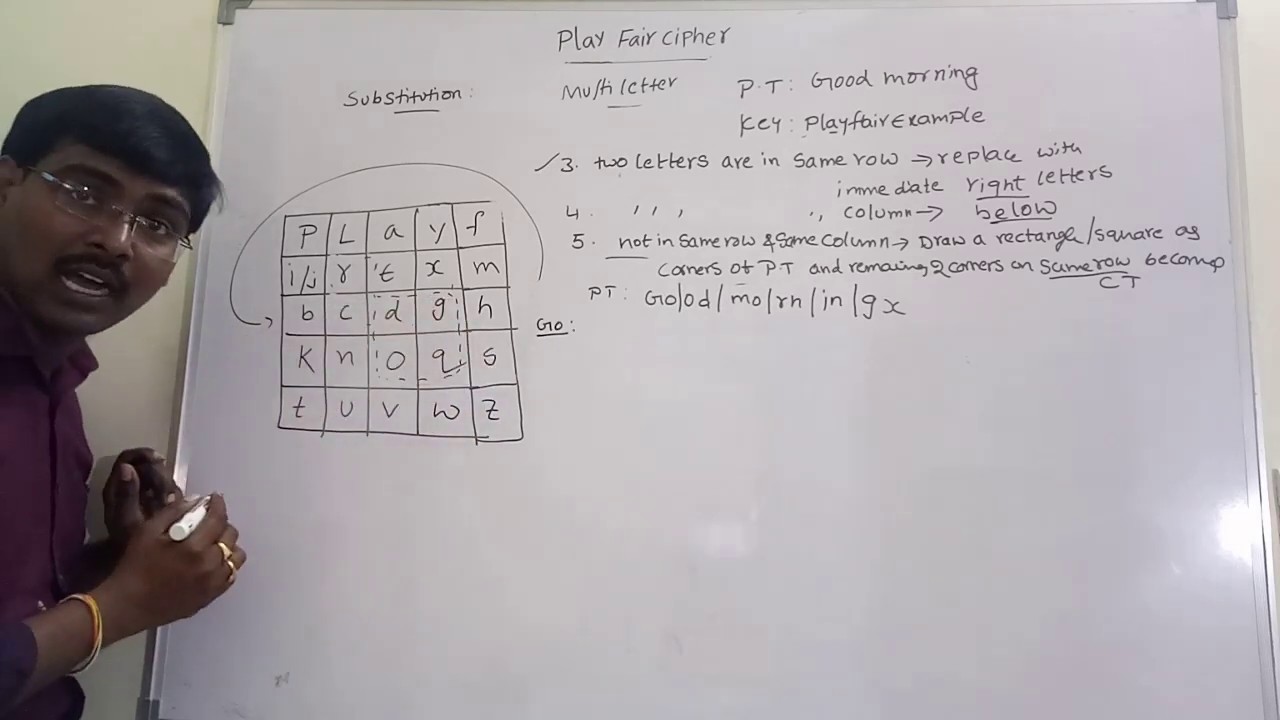 Play Fair cipher
Substitution:
Multiletter
P.T: Good morning
Key: PlayfairExample
3. two letters are in same row → replace with
immediate right letters
4. ,, ,, column → below
5. not in same row & same column → Draw a rectangle/square as
corners of PT and remaining 2 corners on same row become
CT
PT: Go/od/mo/rn/in/gx
Go:
P L a y f
i/j r e x m
b c d g h
K n o q s
t u v w z